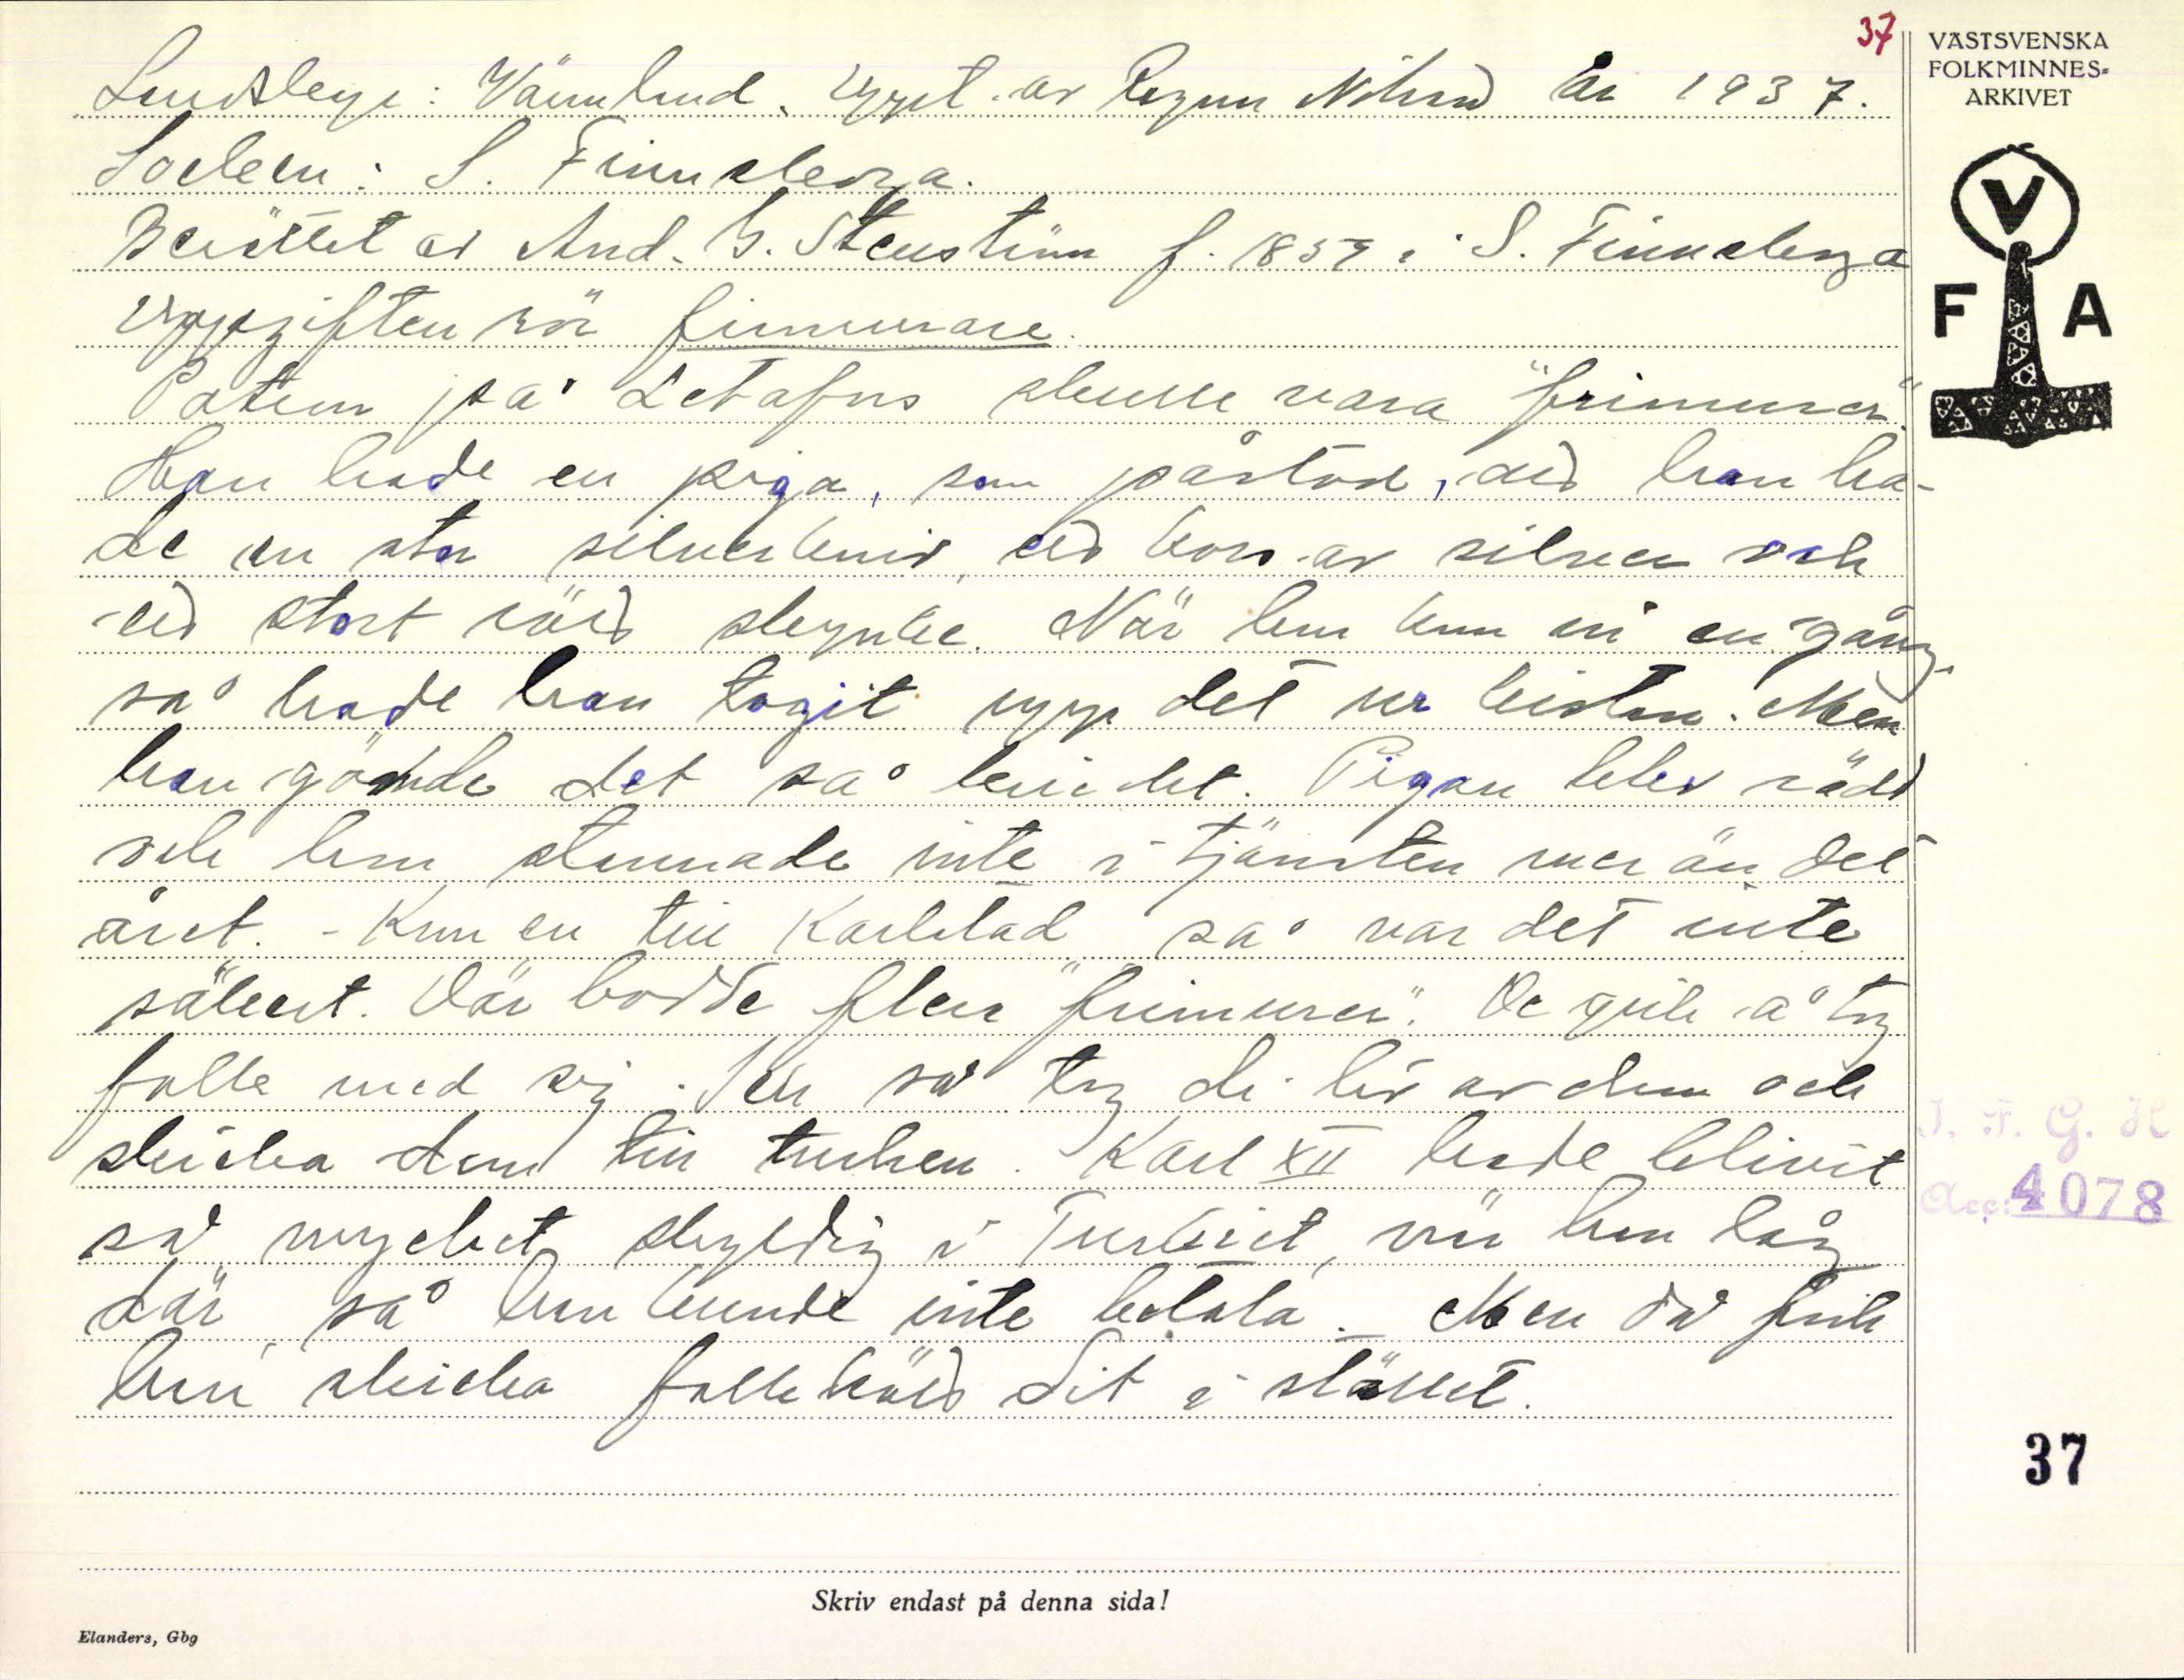 37
VÄSTSVENSKA
FOLKMINNES-
ARKIVET
V
F A
Landskap: Värmland. Uppt. av Ragnar Nilsson År 1937.
Socken: S. Finnskoga.
Berättat av And. G. Stenström f. 1859 i S. Finnskoga
Uppgiften rör frimurare.
Patron på Letafors skulle vara "frimurer".
Han hade en piga, som påstod, att han ha-
de en stor silverkniv, ett kors av silver och
ett stort rött skynke. När hon kom in en gång,
så hade han tagit upp det ur kistan. Men
han gömde det så kvickt. Pigan blev rädd
och hon stannade inte i tjänsten mer än det
året. - Kom en till Karlstad så var det inte
säkert. Där bodde fler "frimurer". De gick å tog
folk med sig. Sen så tog di liv av dem och
skicka dem till turken. Karl XII hade blivit
så mycket skyldig i Turkiet, när han låg
där, så han kunde inte betala. Men då fick
han skicka folkkött dit i stället.
I. F. G. H
Acc. 4078
37
Skriv endast på denna sida!
Elanders, Gbg